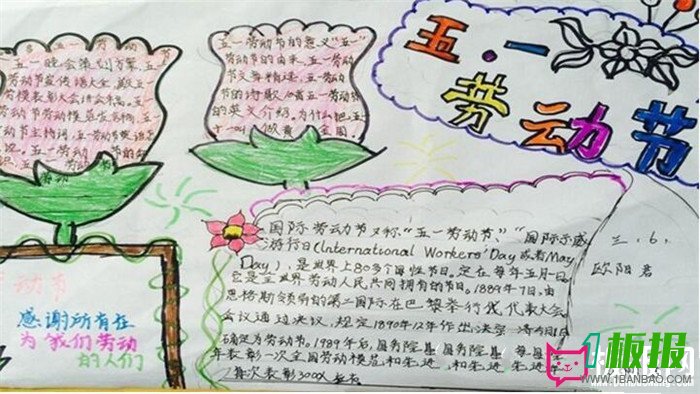 五·一
劳动节
五一劳动节
五一晚会策划方案、五
动节宣传语大全、
劳模表彰大会讲
动节劳动模范发言词、五一
节主持词、五一劳动节
五一劳动节的
劳动
五一劳动节的意义"五一"
劳动节的由来、五一劳动
节文章精选、五一劳动节
的诗歌
的英文介绍、为什么把五
十一叫做黄 全国
动节
感谢所有在
为我们劳动
的人们
国际劳动节又称"五一劳动节""国际示威
游行日(International Workers' Day或者May
Day)，是世界上80多个国性节日。定在每年五月一日。
它是全世界劳动人民共同拥有的节日。1889年7月，由
恩格斯领导的第二国际在巴黎举行代表大会
会议通过决议，规定1890年12年作出决定
确定为劳动节。1989年后，国务院基国务院基 每
年表彰一次全国劳动模范和先进，和先进
每次表彰3000人
三、6、
欧阳君
1板报
WWW.1BANBAO.COM